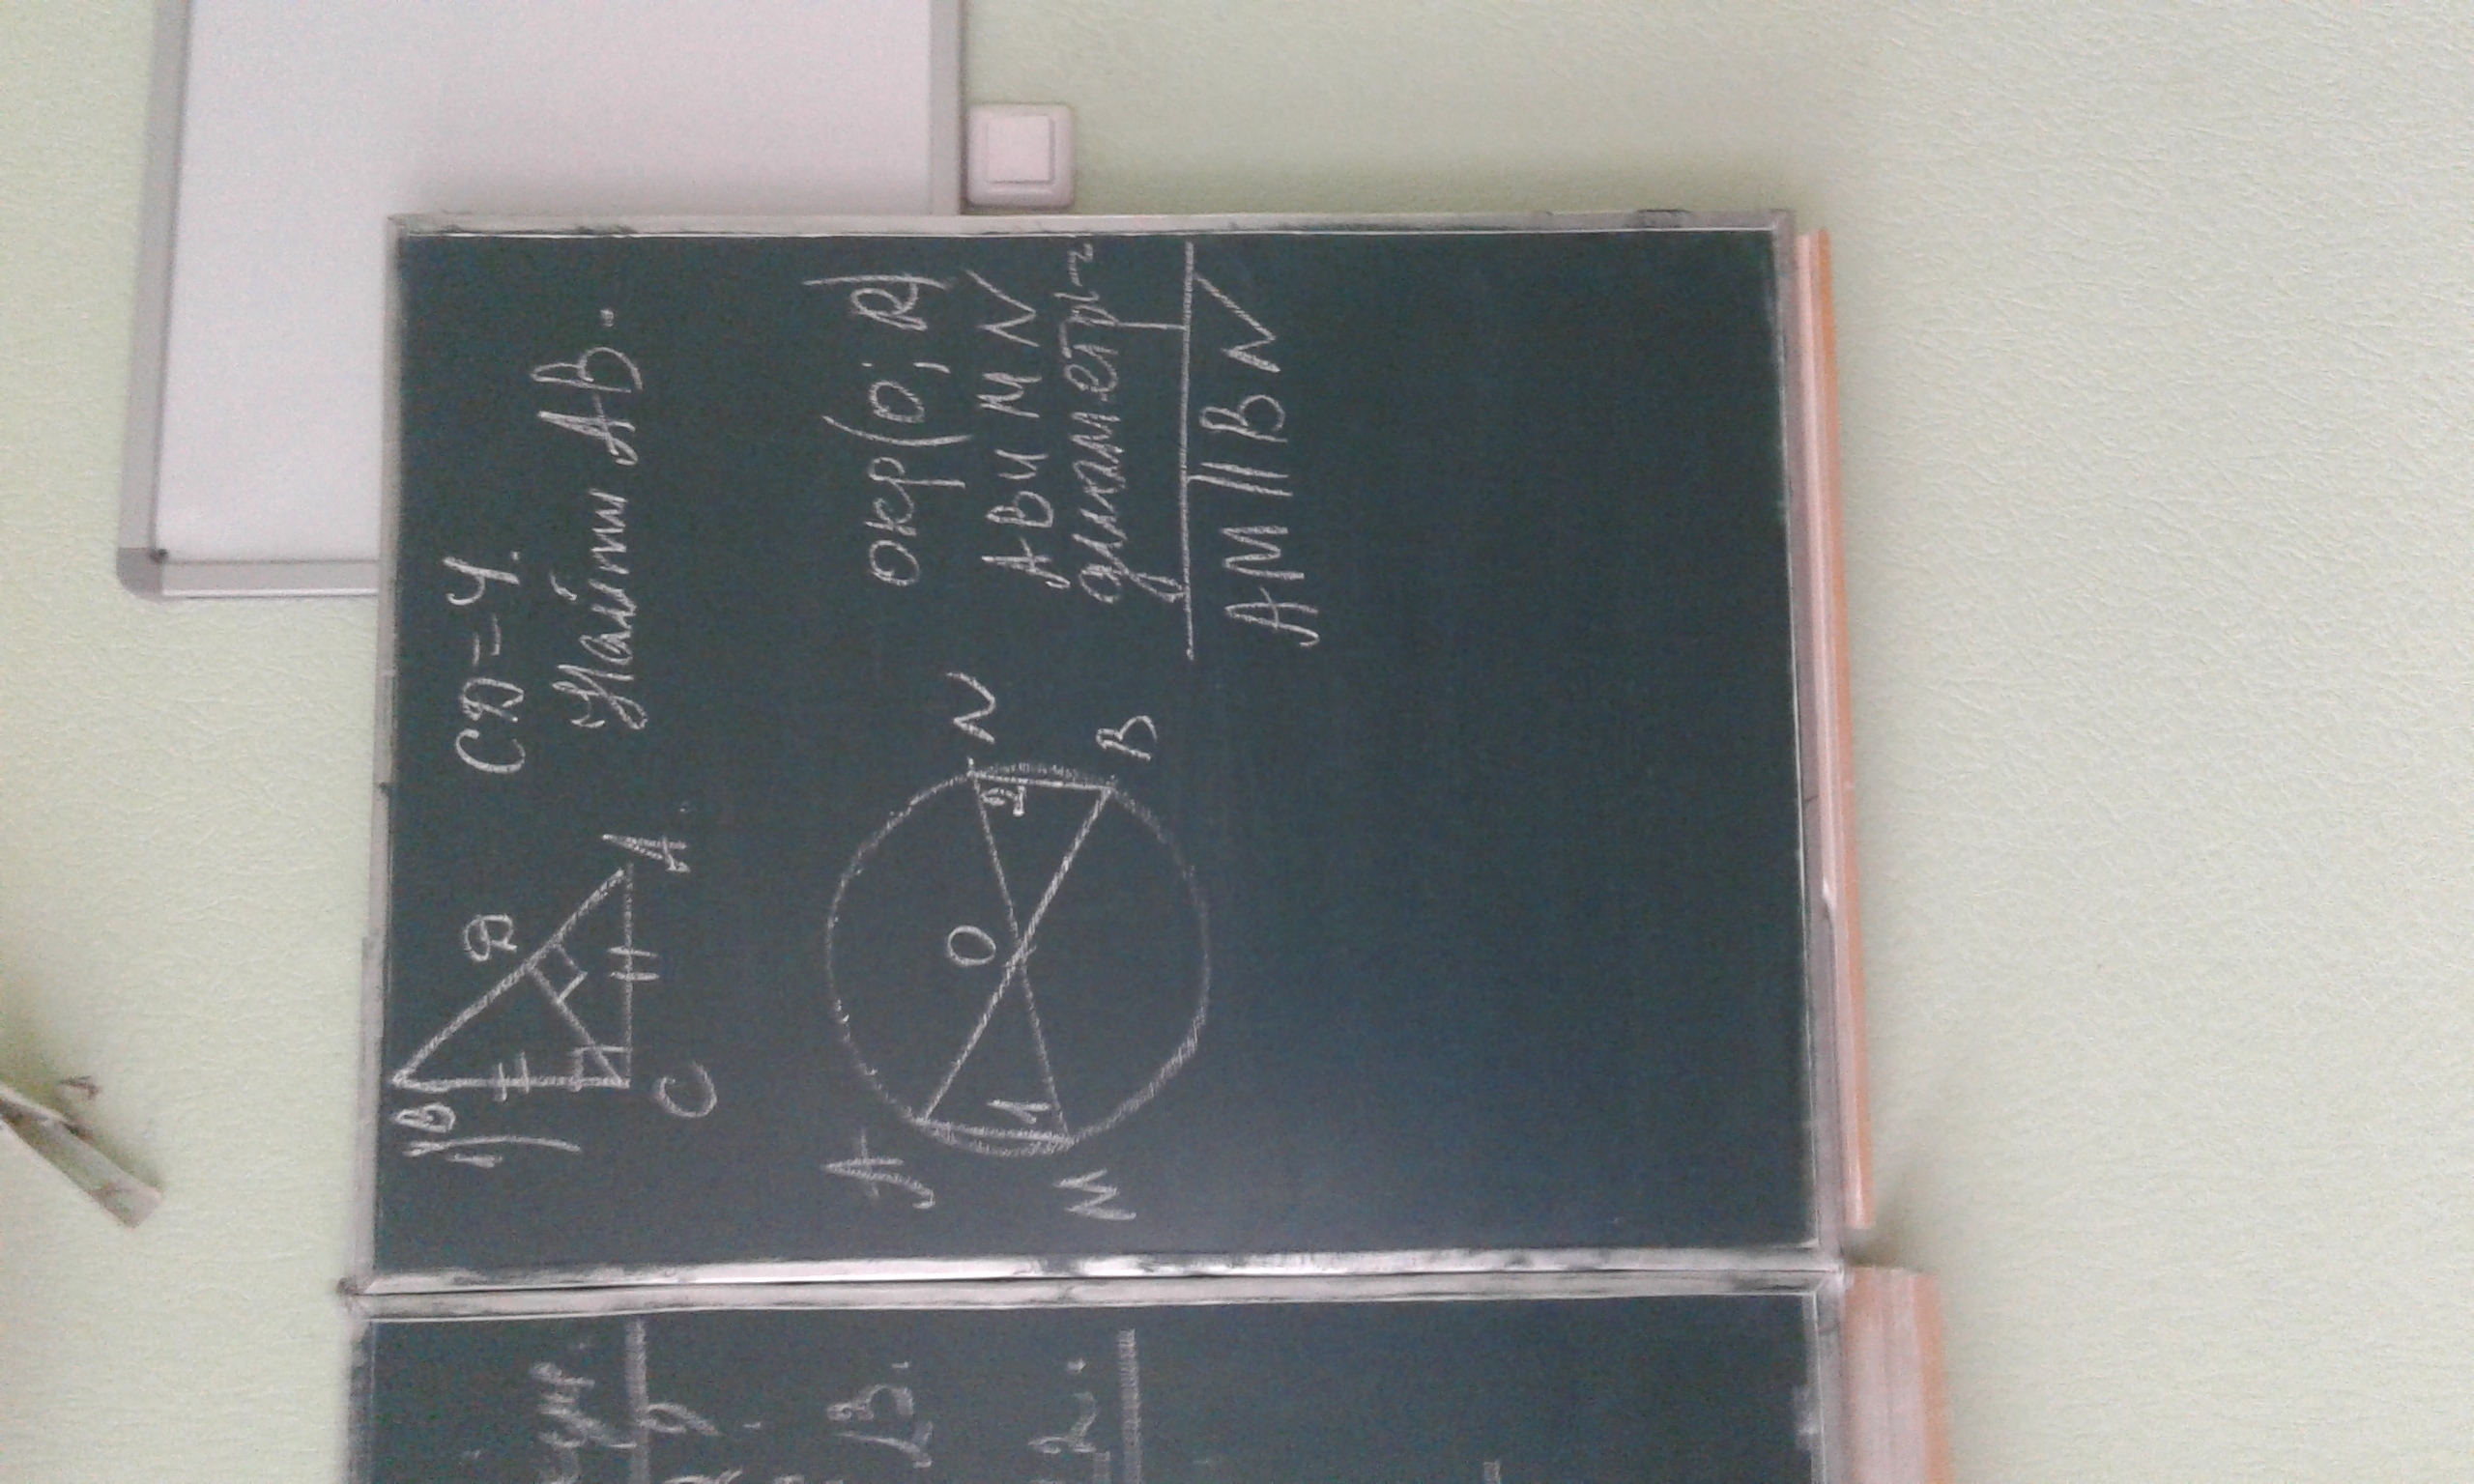 1)
B
D
C
A
CD = 4.
Найти AB.
A
N
O
1
2
M
B
окр(O; R)
AB и MN
диаметры
AM || BN
B.